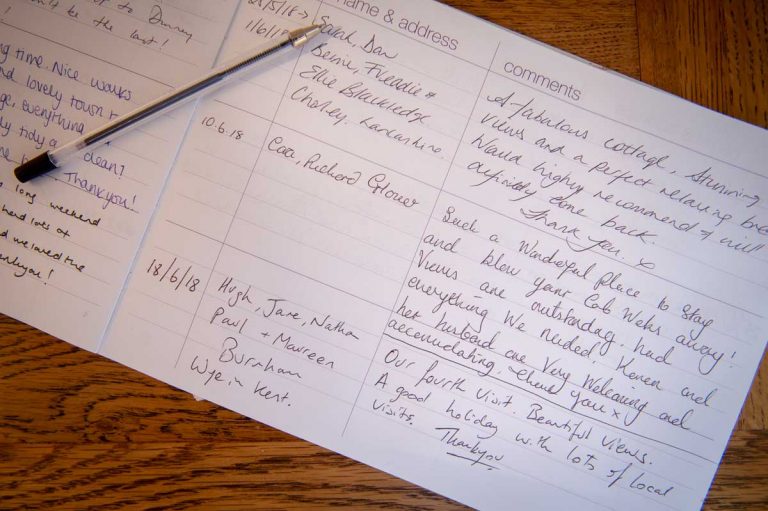 up to Dunney
n't be the last!
ng time. Nice walks
nd lovely town t
ge, everything
dy tidy a clean?
Thankyou!
long weekend
had lots of
d we loved the
ankyou!
name & address
comments
25/5/18 →
1/6/1
Sarah, Dan
Bernie, Freddie +
Ellie Blackledge
Chorley. Lancashire.
A fabulous cottage, Stunning
views and a perfect relaxing bre
Would highly recommend & will
definitely come back.
Thank you. x
10.6.18
Cara, Richard Glover
Such a wonderful place to stay
and blow your Cob Webs away!
Views are outstanding, had
everything we needed. Karen and
her husband are very welcoming and
accomodating, thank you x
18/6/18
Hugh, Jane, Nathan
Paul + Maureen
Burnham
Wye in Kent.
Our fourth visit. Beautiful views.
A good holiday with lots of local
visits.
Thankyou